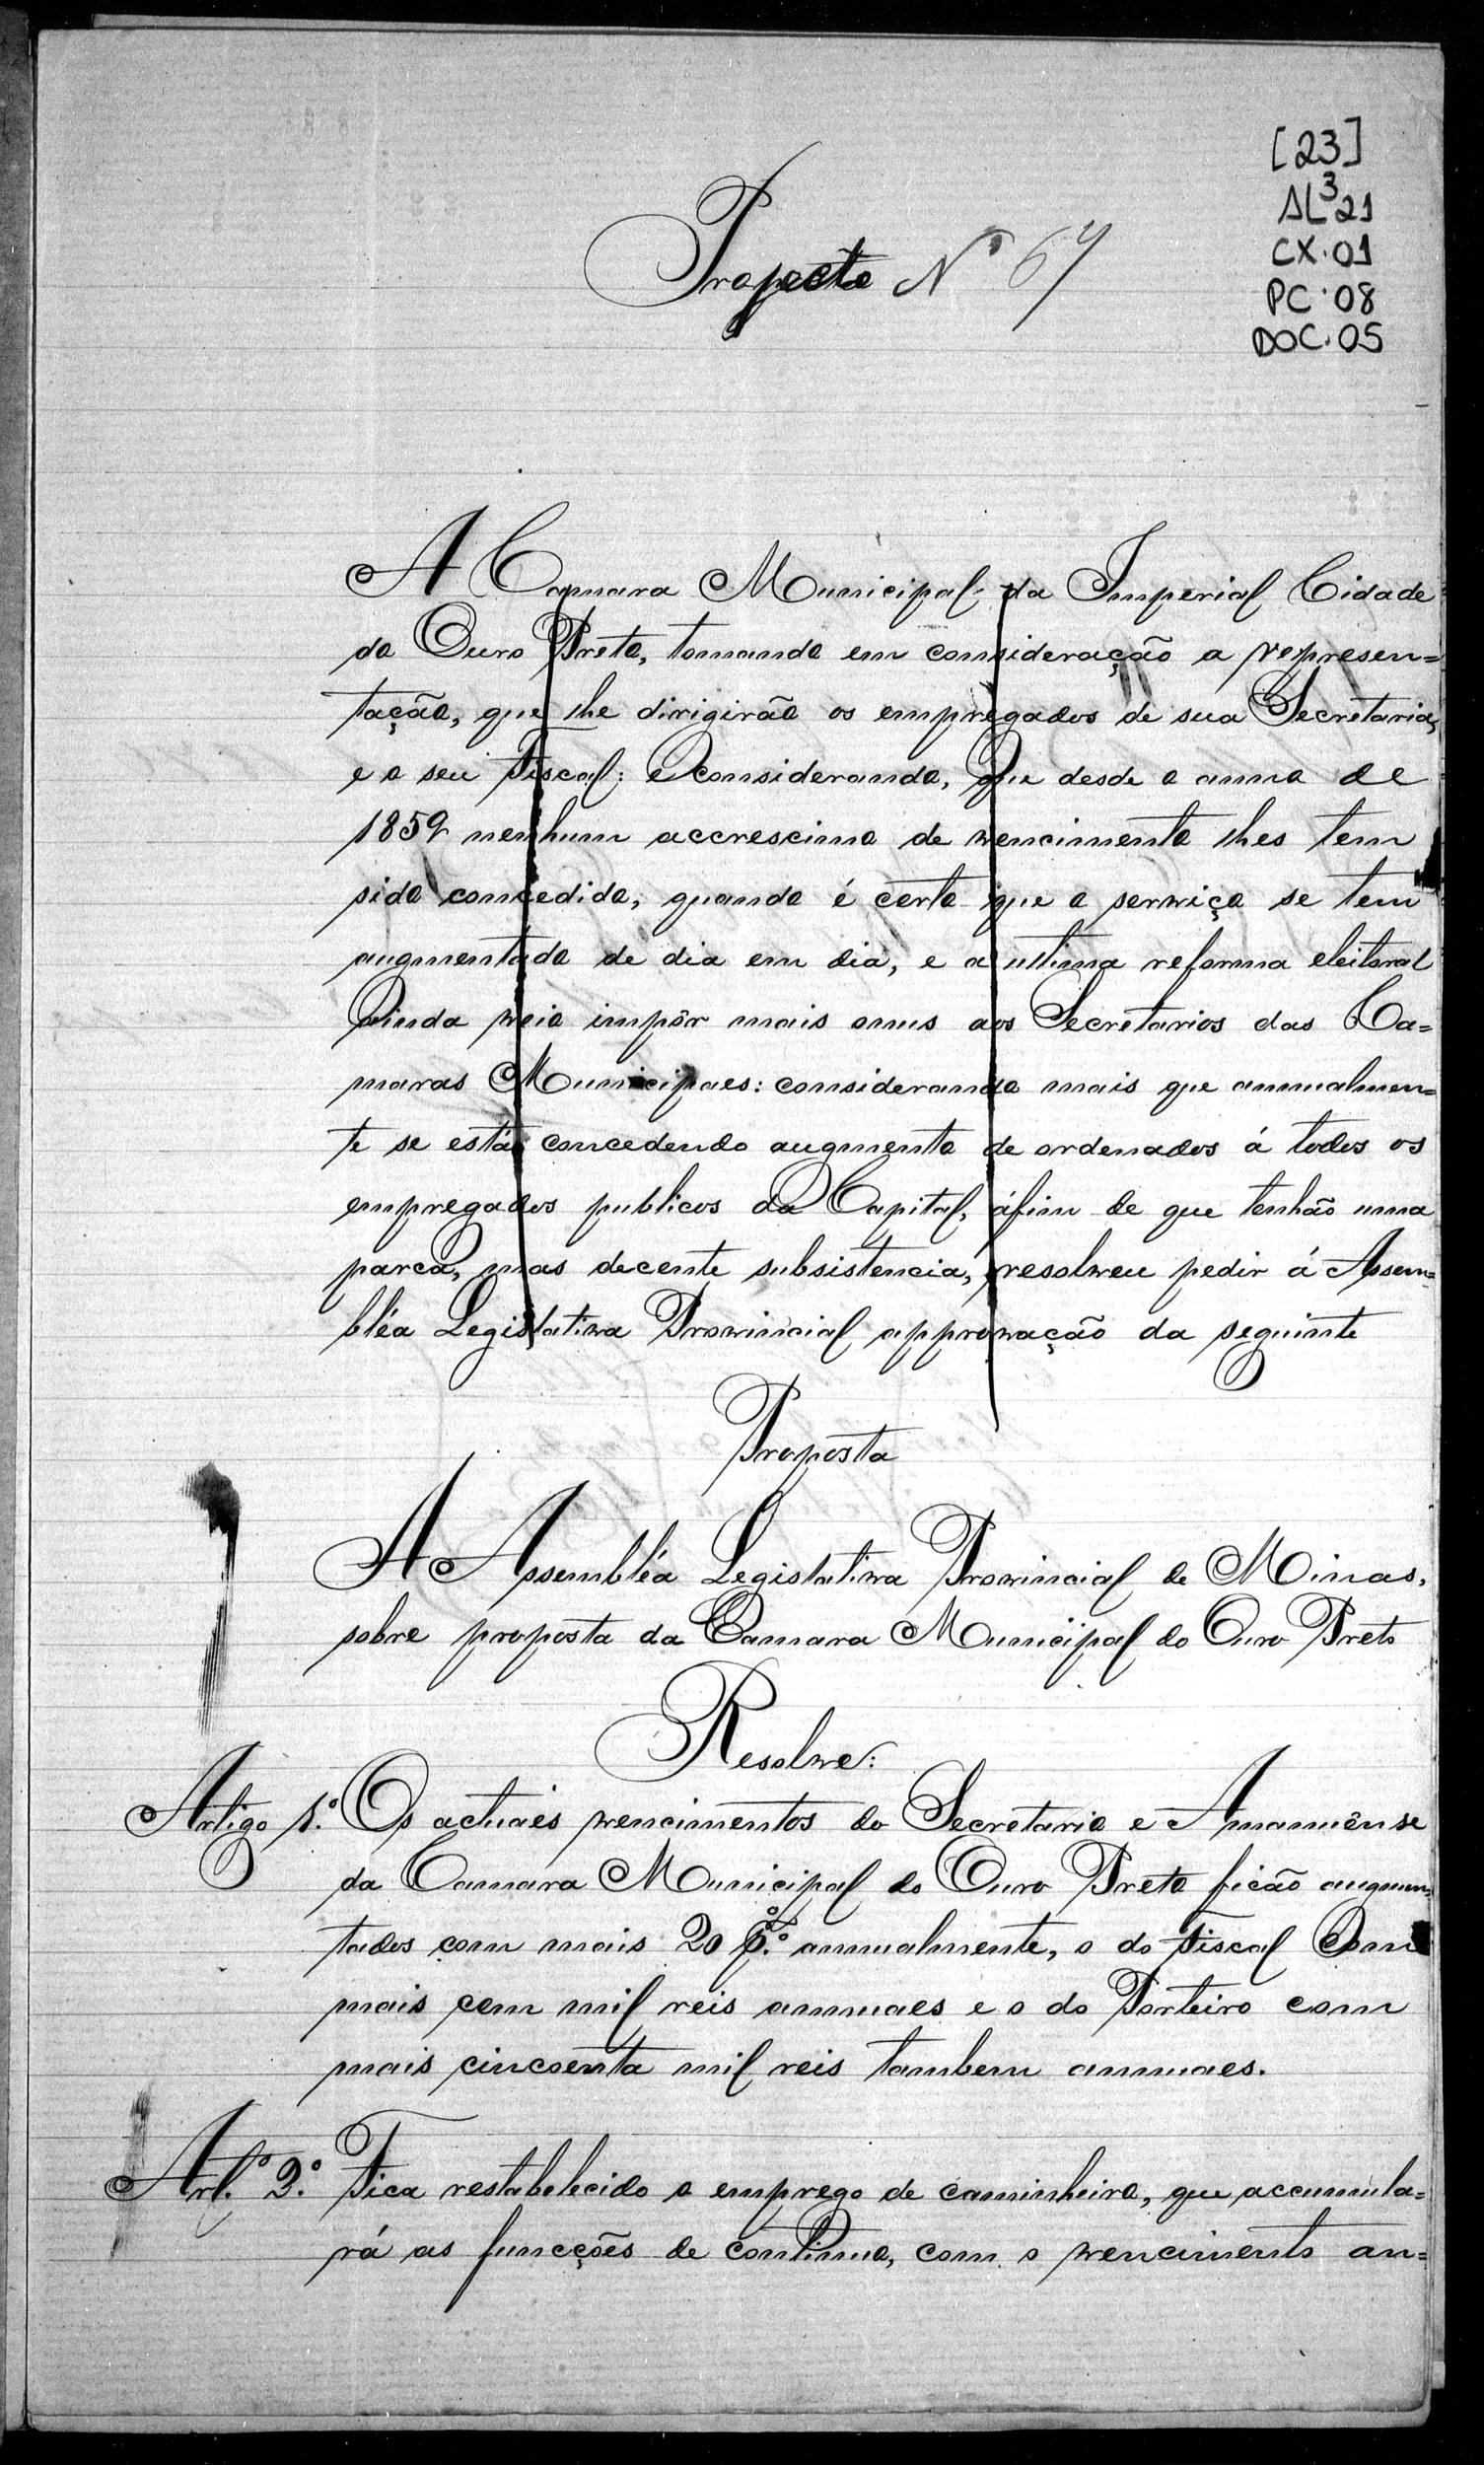 [23]
AL³21
CX.01
PC.08
DOC.05
Projecto Nº 67
A Camara Municipal da Imperial Cidade
do Ouro Preto, tomando em consideração a represen=
tação, que lhe dirigirão os empregados de sua Secretaria,
e o seu Fiscal: e considerando, que desde o anno de
1859 nenhum accrescimo de vencimento lhes tem
sido concedido, quando é certo que o serviço se tem
augmentado de dia em dia, e a ultima reforma eleitoral
ainda veio impôr mais onus aos Secretarios das Ca=
maras Municipaes: considerando mais que annualmen=
te se está concedendo augmento de ordenados á todos os
empregados publicos da Capital, áfim de que tenhão uma
parca, mas decente subsistencia, resolveu pedir á Assem=
bléa Legislativa Provincial approvação da seguinte
Proposta
A Assembléa Legislativa Provincial de Minas,
sobre proposta da Camara Municipal do Ouro Preto
Resolve:
Artigo 1.º Os actuaes vencimentos do Secretario e Amanuênse
da Camara Municipal do Ouro Preto ficão augmen=
tados com mais 20 p.% annualmente, o do Fiscal com
mais cem mil reis annuaes e o do Porteiro com
mais cincoenta mil reis tambem annuaes.
Art.º 2.º Fica restabelecido o emprego de caminheiro, que accumula=
rá as funcções de continuo, com o vencimento an=